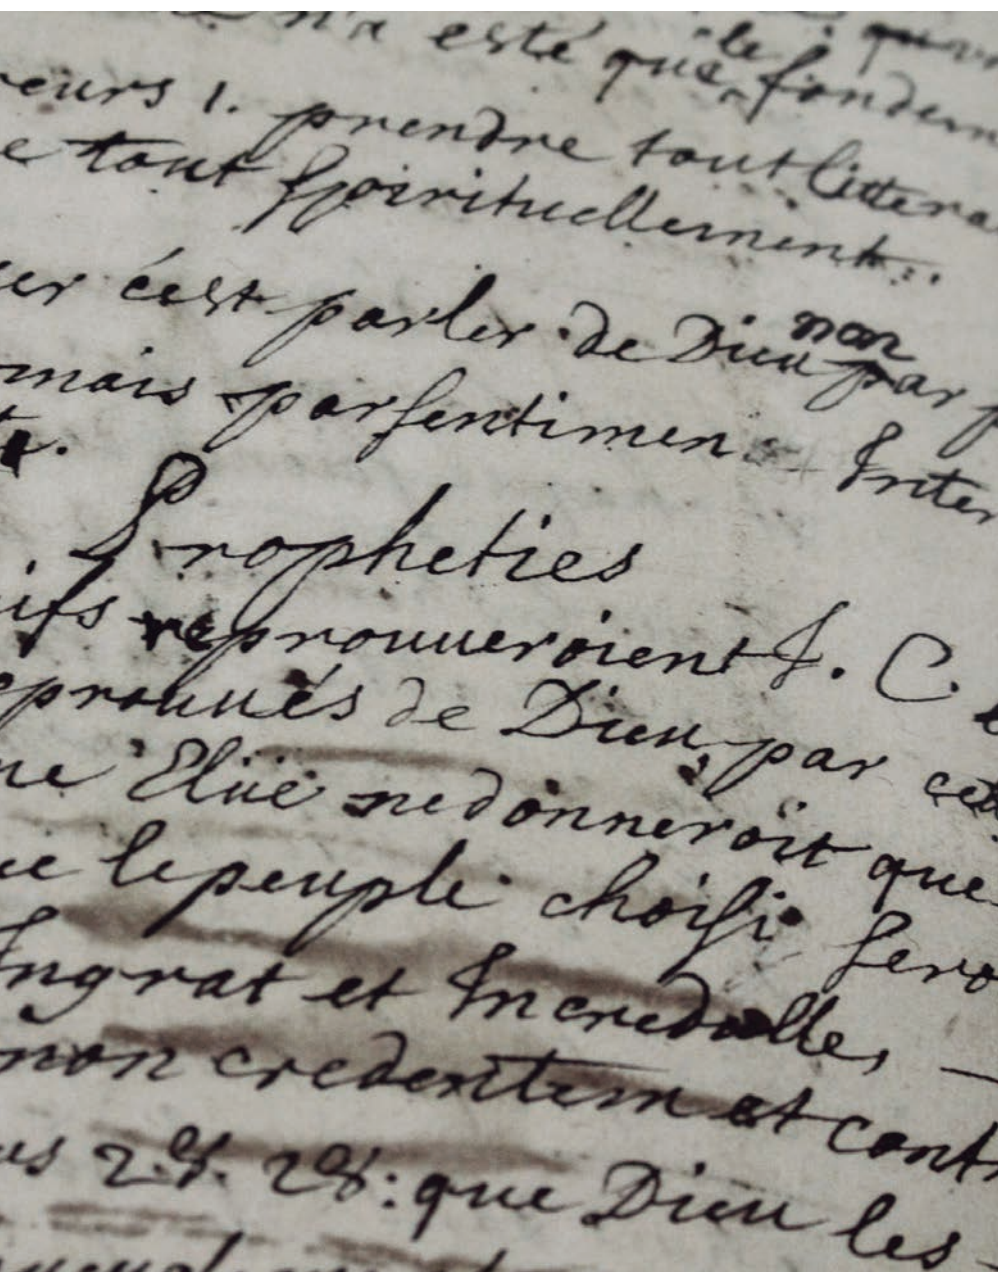 n'a esté que le fondem
eurs 1. prendre tout littera
e tout spirituellement.
er c'est parler de Dieu non par p
mais par sentimen Inter
Propheties
uifs reprouueroient J. C. e
eprouués de Dieu, par ce
ne Elüe ne donneroit que
ue le peuple choisi sero
Ingrat et Incredulle,
non credentem et contr
us 28. 28: que Dieu les